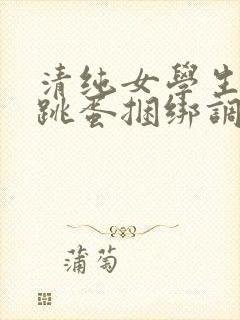 清纯女學生
跳蚤捆绑調
蒲萄